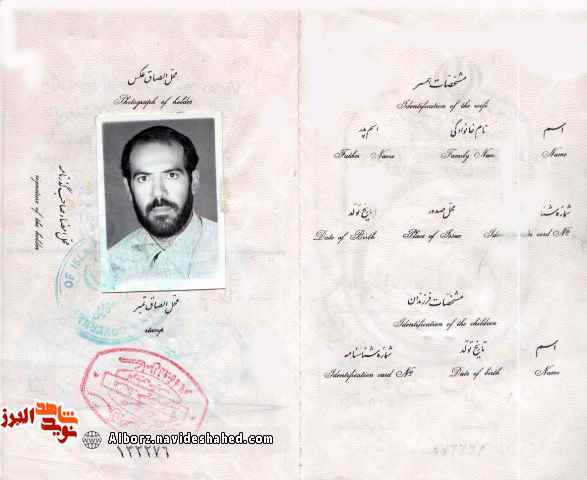 محل الصاق عکس
Photograph of holder
محل امضاء صاحب گذرنامه
signature of the holder
محل الصاق تمبر
stamp
مشخصات همسر
Identification of the wife
اسم
نام خانوادگی
اسم پدر
Name
Family Name
Father Name
شماره شنا
محل صدور
تاریخ تولد
card Nº
Place of Issue
Date of Birth
مشخصات فرزندان
Identification of the children
اسم
تاریخ تولد
شماره شناسنامه
Name
Date of birth
Identification card Nº
نوید شاهد البرز
Alborz.navideshahed.com
۱۳۲۲۷۶